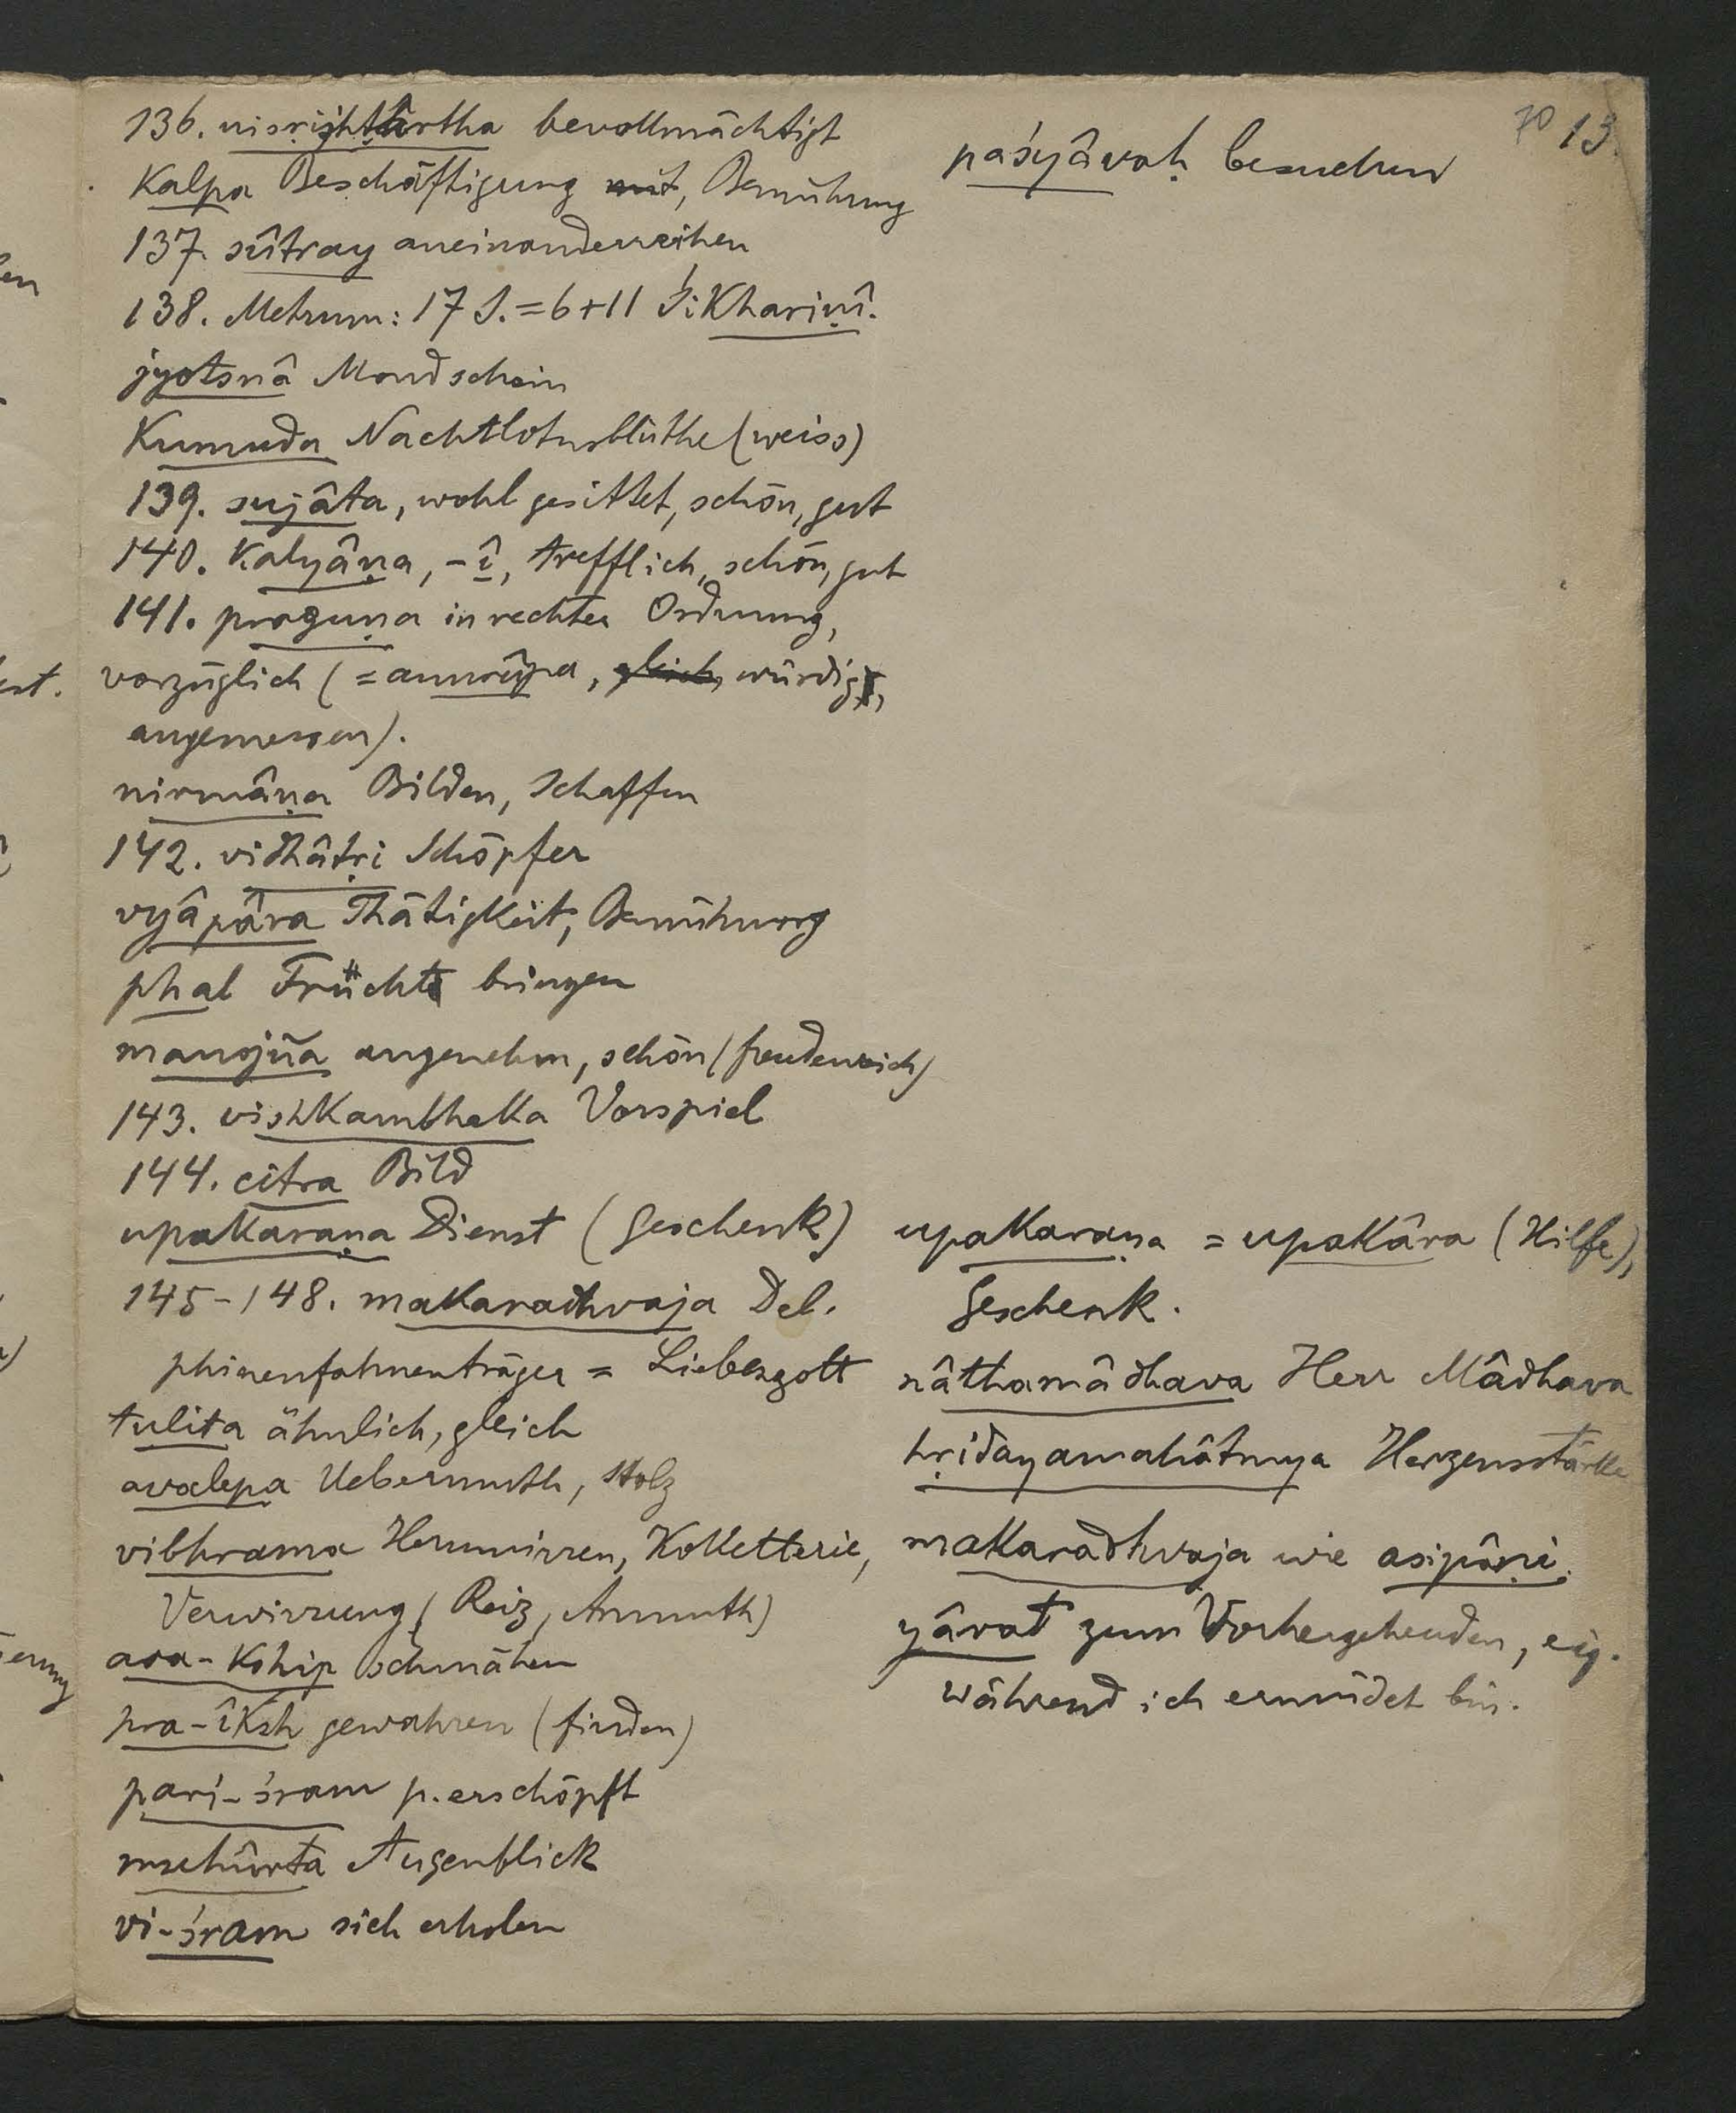 70 13.
136. nisṛishṭârtha bevollmächtigt
Kalpa Beschäftigung mit, Bemühung
137. sûtray aneinanderreihen
138. Metrum: 17 S. = 6 + 11 Śikhariṇî.
jyotsnâ Mondschein
Kumuda Nachtlotusblüthe (weiss)
139. sujâta, wohl gesittet, schön, gut
140. Kalyâṇa, -î, trefflich, schön, gut
141. praguṇa in rechter Ordnung,
vorzüglich (= anurûpa, gleich, würdig,
angemessen).
nirmâṇa Bilden, Schaffen
142. vidhâtṛi Schöpfer
vyâpâra Thätigkeit, Bemühung
phal Früchte bringen
manojña angenehm, schön (freudenreich)
143. vishkambhaka Vorspiel
144. citra Bild
upakaraṇa Dienst (Geschenk)
145-148. makaradhvaja Del-
phinenfahnenträger = Liebesgott
tulita ähnlich, gleich
avalepa Uebermuth, Stolz
vibhrama Herumirren, Koketterie,
Verwirrung (Reiz, Anmuth)
ava-kship schmähen
pra-îksh gewahren (finden)
pari-śram p. erschöpft
muhûrta Augenblick
vi-śram sich erholen
paśyâvaḥ besuchen
upakaraṇa = upakâra (Hilfe),
Geschenk.
nâthamâdhava Herr Mâdhava
hṛidayamahâtmya Herzensstärke
makaradhvaja wie asipâṇi.
yâvat zum Vorhergehenden, eig.
während ich ermüdet bin.